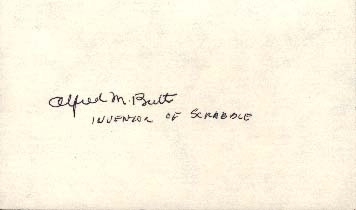 Alfred M. Butts
INVENTOR OF SCRABBLE